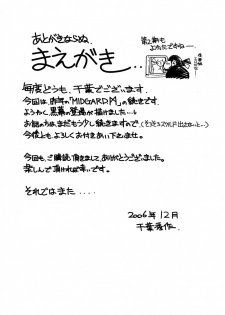 あとがきならぬ、
まえがき..
第2期も
よかったですねー
毎度どうも、千葉でございます。
今回は、昨年の「MIDGARD」の続きです。
ようやく、黒幕の登場が描けました…
お話のほうは、まだもう少し続きますので、
今後とも、よろしくおつきあい下さいませ。
今回も、ご購読頂きましてありがとうございました。
楽しんで頂ければ幸いです。
それではまた‥‥
2006年12月
千葉秀作